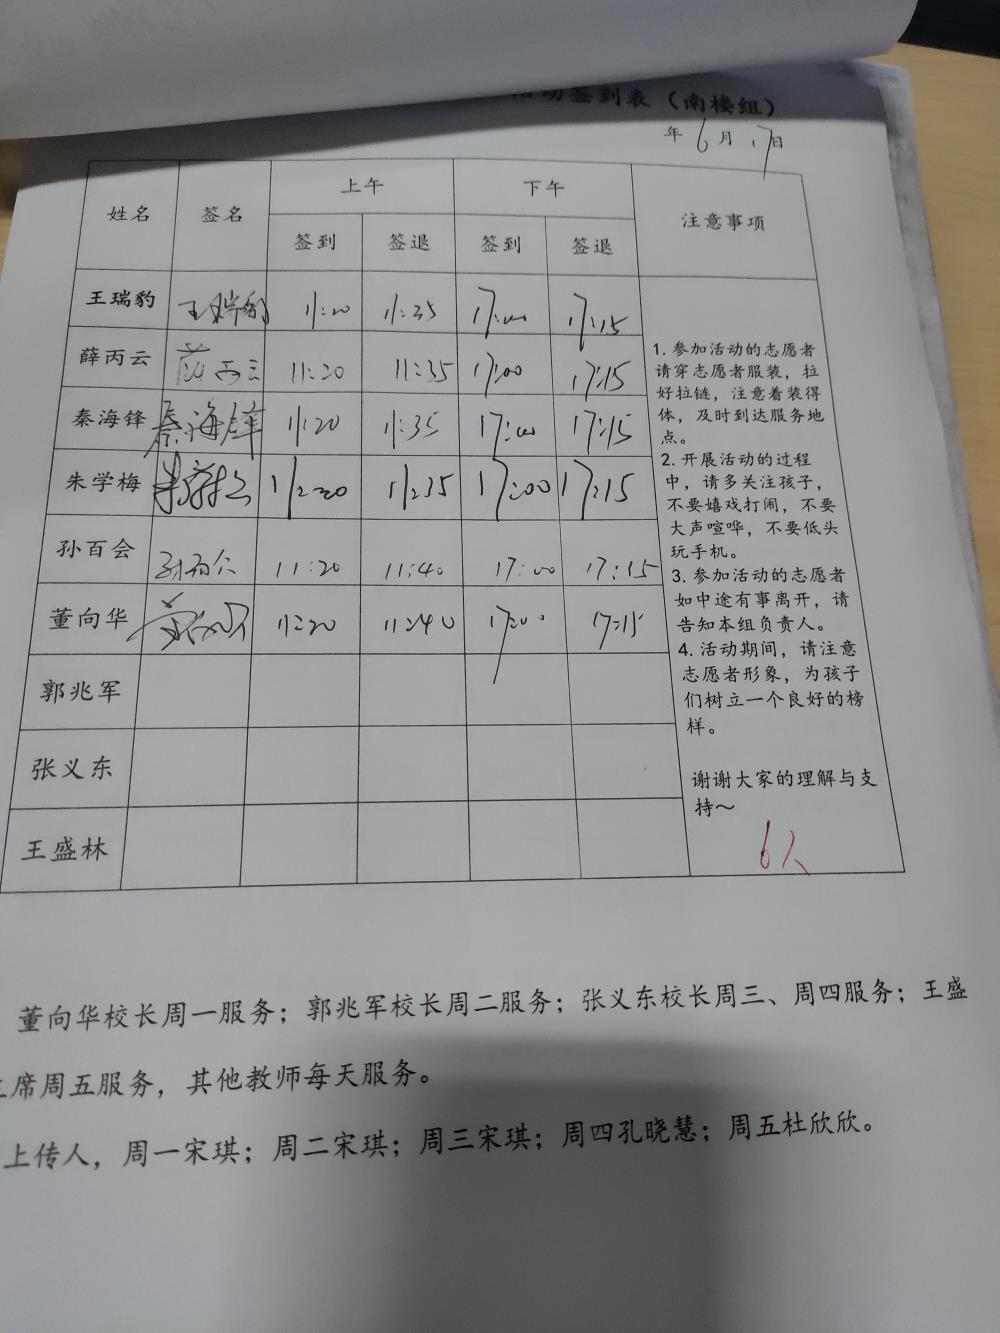 活动签到表（南楼组）
年 6月 17日
姓名 签名 上午 下午 注意事项
签到 签退 签到 签退
王瑞豹 王瑞豹 11:20 11:35 17:00 17:15
薛丙云 薛丙云 11:20 11:35 17:00 17:15
秦海锋 秦海锋 11:20 11:35 17:00 17:15
朱学梅 朱学梅 11:20 11:35 17:00 17:15
孙百会 孙百会 11:20 11:40 17:00 17:15
董向华 董向华 11:20 11:40 17:00 17:15
郭兆军
张义东
王盛林
1. 参加活动的志愿者
请穿志愿者服装，拉
好拉链，注意着装得
体，及时到达服务地
点。
2. 开展活动的过程
中，请多关注孩子，
不要嬉戏打闹，不要
大声喧哗，不要低头
玩手机。
3. 参加活动的志愿者
如中途有事离开，请
告知本组负责人。
4. 活动期间，请注意
志愿者形象，为孩子
们树立一个良好的榜
样。
谢谢大家的理解与支
持～
6人
董向华校长周一服务；郭兆军校长周二服务；张义东校长周三、周四服务；王盛
主席周五服务，其他教师每天服务。
上传人，周一宋琪；周二宋琪；周三宋琪；周四孔晓慧；周五杜欣欣。